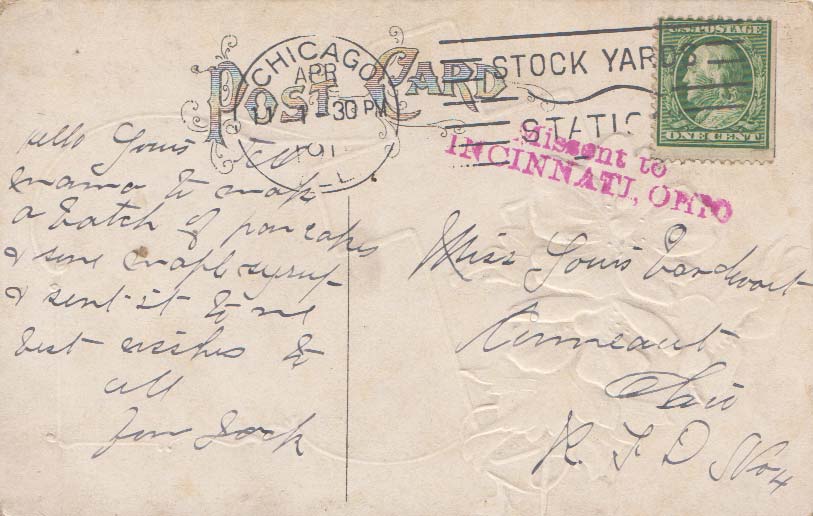 POST CARD
CHICAGO
APR
11 1-30 PM
191
L
STOCK YARDS
STATIO
U.S. POSTAGE
ONE CENT
Missent to
INCINNATI, OHIO
Hello Louis Tell
mama to make
a batch of pancakes
& some maple syrup
& sent it to me
best wishes to
all
Miss Louis Vandervort
Conneaut
Ohio
R F D No 4